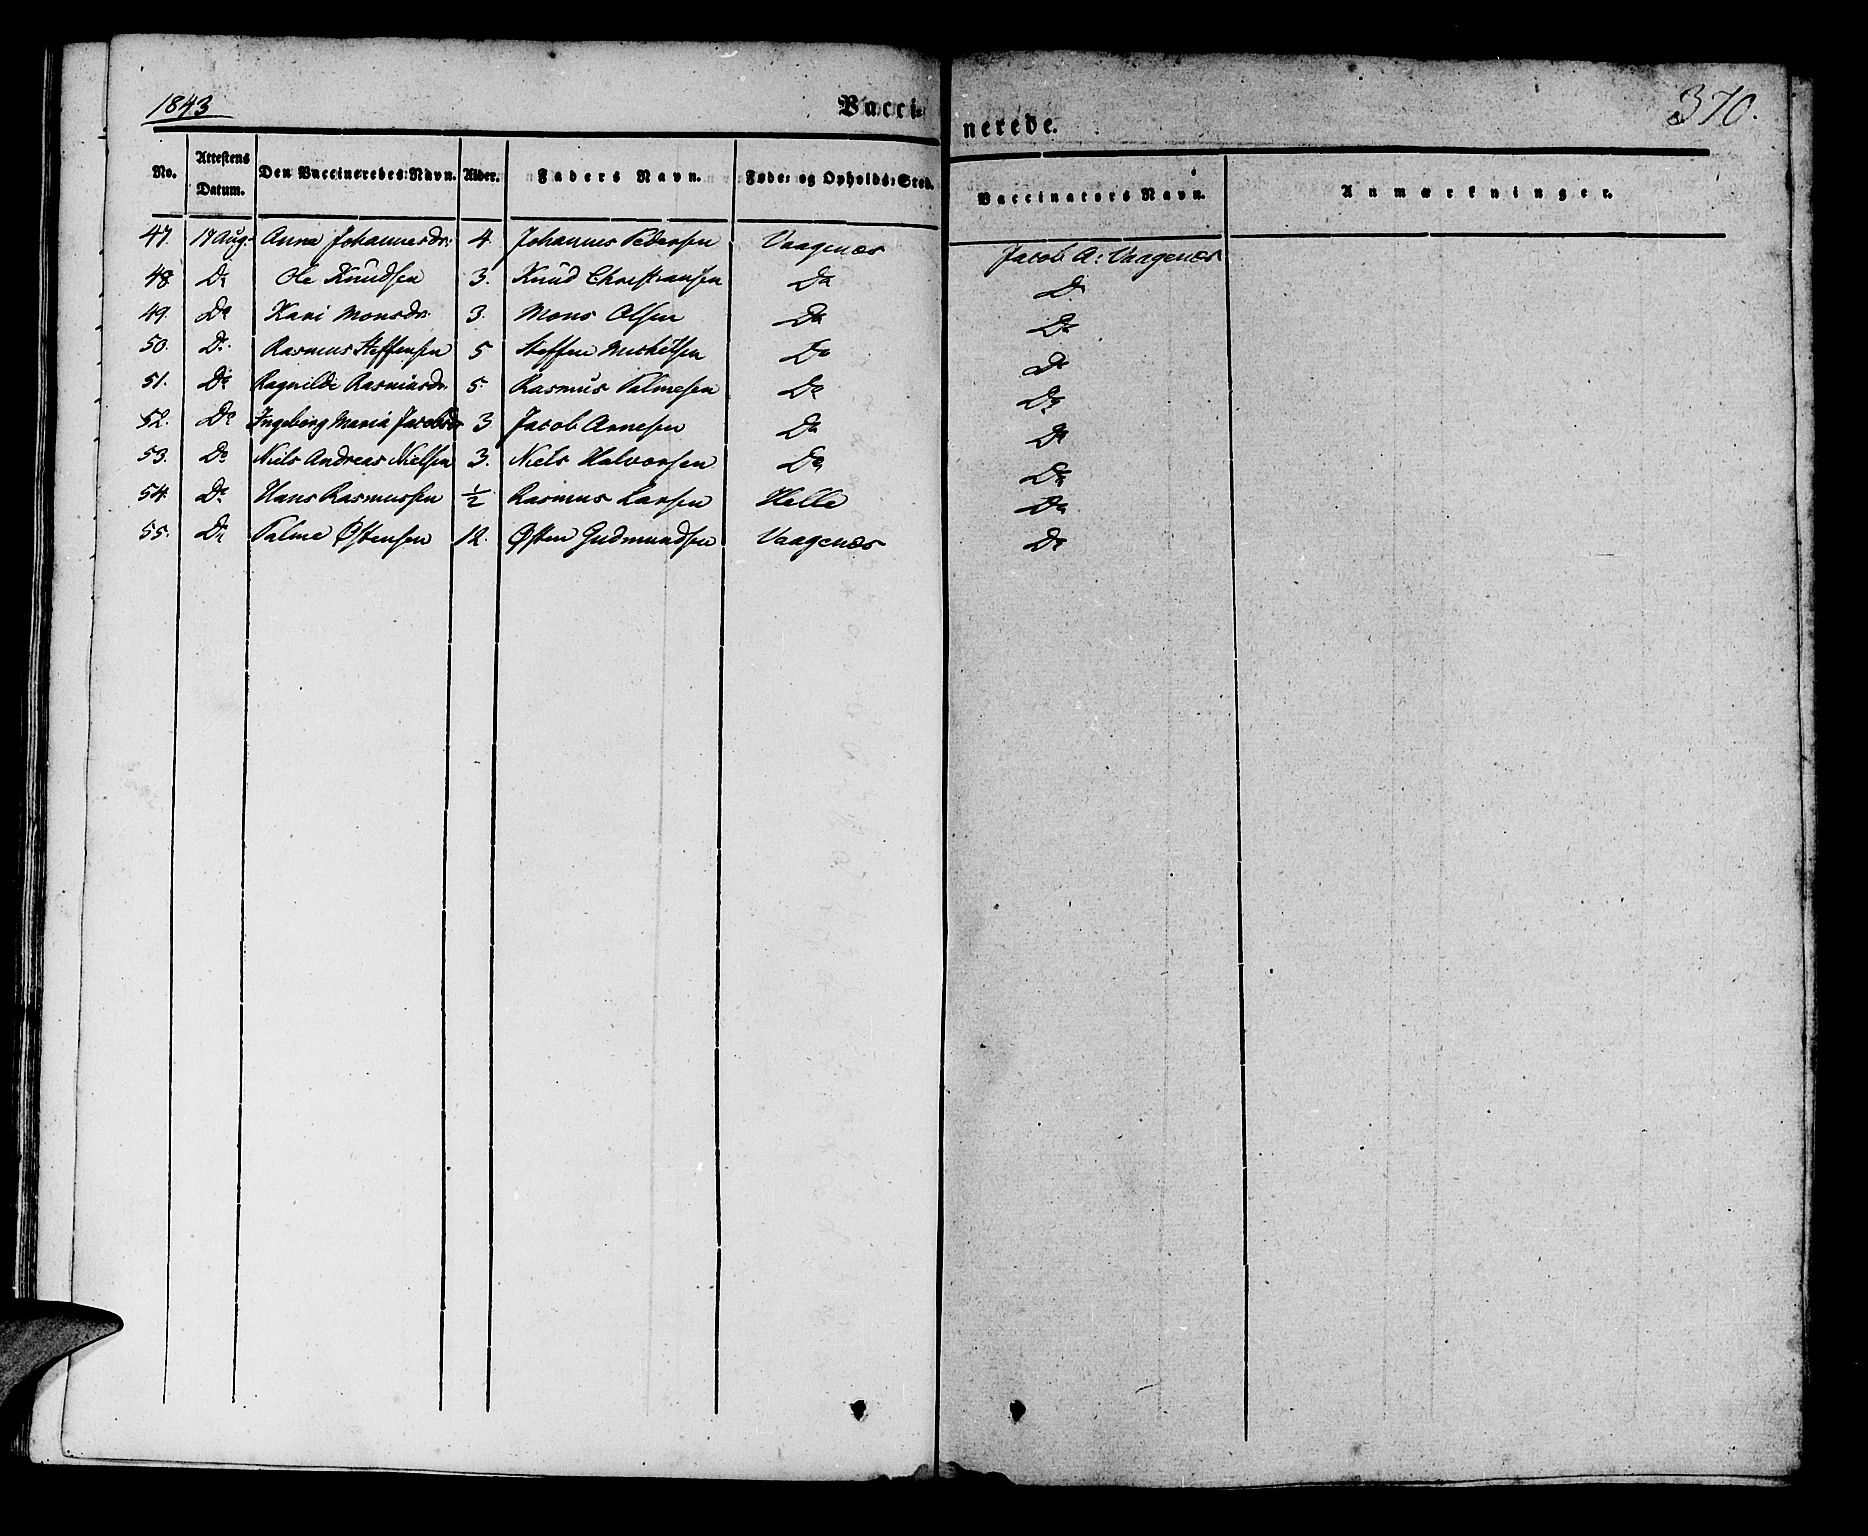 1843 Vacci- nerede. 370.
No. Attestens Datum. Den Vaccineredes Navn. Alder. Faders Navn. Føde- og Opholds-Sted. Vaccinators Navn. Anmærkninger.
47. 17 Aug. Anna Johannesdr. 4. Johannes Pedersen Vaagenæs Jacob A: Vaagenæs
48 Do Ole Knudsen 3. Knud Christiansen Do Do
49. Do Kari Monsdr. 3. Mons Olsen Do Do
50. Do Rasmus Steffensen 5 Steffen Michelsen Do Do
51. Do Ragnilde Rasmusdr. 5. Rasmus Palmesen Do Do
52. Do Ingeborg Maria Jacobsdr 3 Jacob Arnesen Do Do
53. Do Niels Andreas Nielsen 3. Niels Halvorsen Do Do
54. Do Hans Rasmussen ½ Rasmus Larsen Helle Do
55. Do Palme Østensen 12. Østen Gudmundsen Vaagenæs Do